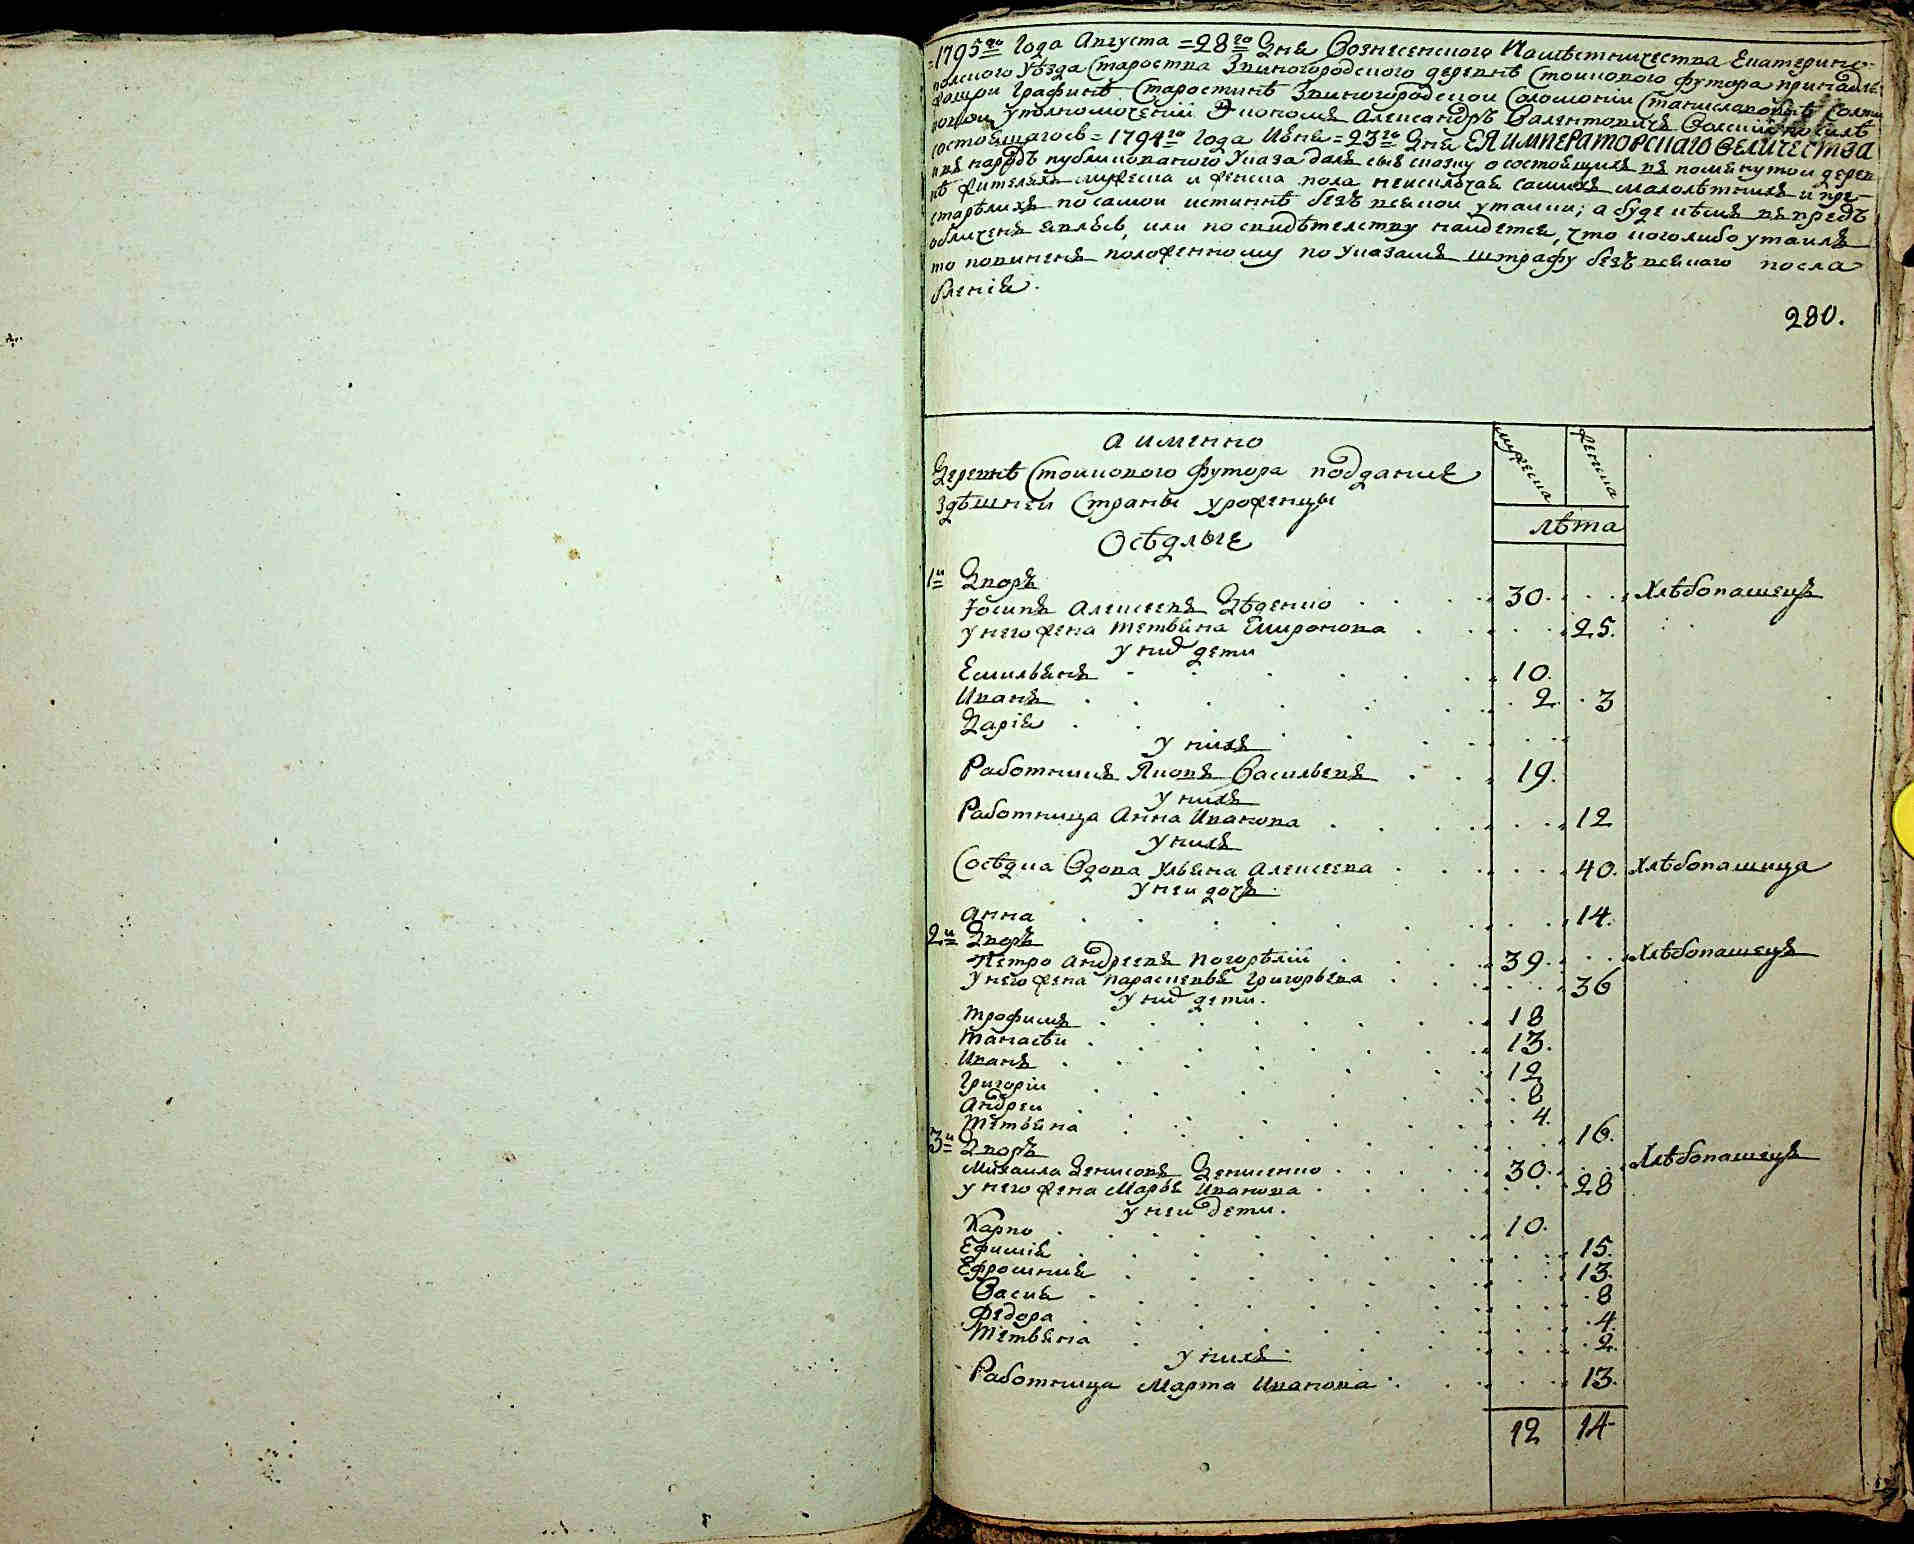 1795го Года Августа = 28го Дня Вознесенского Намѣстничества Екатерино-
полского Уѣзда Староства Звиногородского деревнѣ Стоикового футора принадле
жащои Графинѣ Старостинѣ Звиногородскои Соломонии Станиславовнѣ
Уполномоченіи Экономъ Александръ Валентовичъ силѣ
состоявшагось = 1794го Года Июня = 23го Дня ЕЯ ИМПЕРАТОРСКАГО ВЕЛИЧЕСТВА
и въ народъ публикованого Указа далъ сью сказку о состоящихъ въ помянутои дерев
нѣ жителяхъ мужеска и женска пола неисключая самихъ малолѣтнихъ и пре-
старѣлихъ по самои истиннѣ безъ всякои утаики; а буде кѣмъ въ предъ
обличенъ явлюсь, или по свидѣтелству наидется, что коголибо утаилъ
то повиненъ положенному по Указамъ штрафу безъ всякаго посла
бленія.
280.
а именно
Деревнѣ Стоикового футора поддание
здѣшней Страны уроженцы
Осѣдлые
мужеска
женска
лѣта
1и Дворъ
Іосипъ Алексеевъ Дѣденко 30. Хлѣбопашецъ
у него жена Тетьяна Емиронова 25.
у них дети
Емильянъ 10.
Иванъ 2 3
Дарія
у нихъ
Работникъ Яковъ Васильевъ 19.
у нихъ
Работница Анна Иванова 12
у нихъ
Сосѣдка Вдова Ульяна Алексеева 40. Хлѣбопашица
у неи дочь
Анна 14.
2и Дворъ
Петро Андреевъ Погорѣліи 39. Хлѣбопашецъ
у него жена Парасковья Григорьева 36
у них дети.
Трофимъ 18
Танасѣи 13.
Иванъ 12
Григории 8
Андреи 4.
Тетьяна 16.
3и Дворъ
Михаила Денисовъ Денисенко 30. Хлѣбопашецъ
у него жена Марья Иванова 28
у неи дети.
Карпо 10.
Ефимія 15.
Ефрошния 13.
Васия 8
Федора 4.
Тетьяна 2.
у нихъ
Работница Марта Иванова 13.
12 14